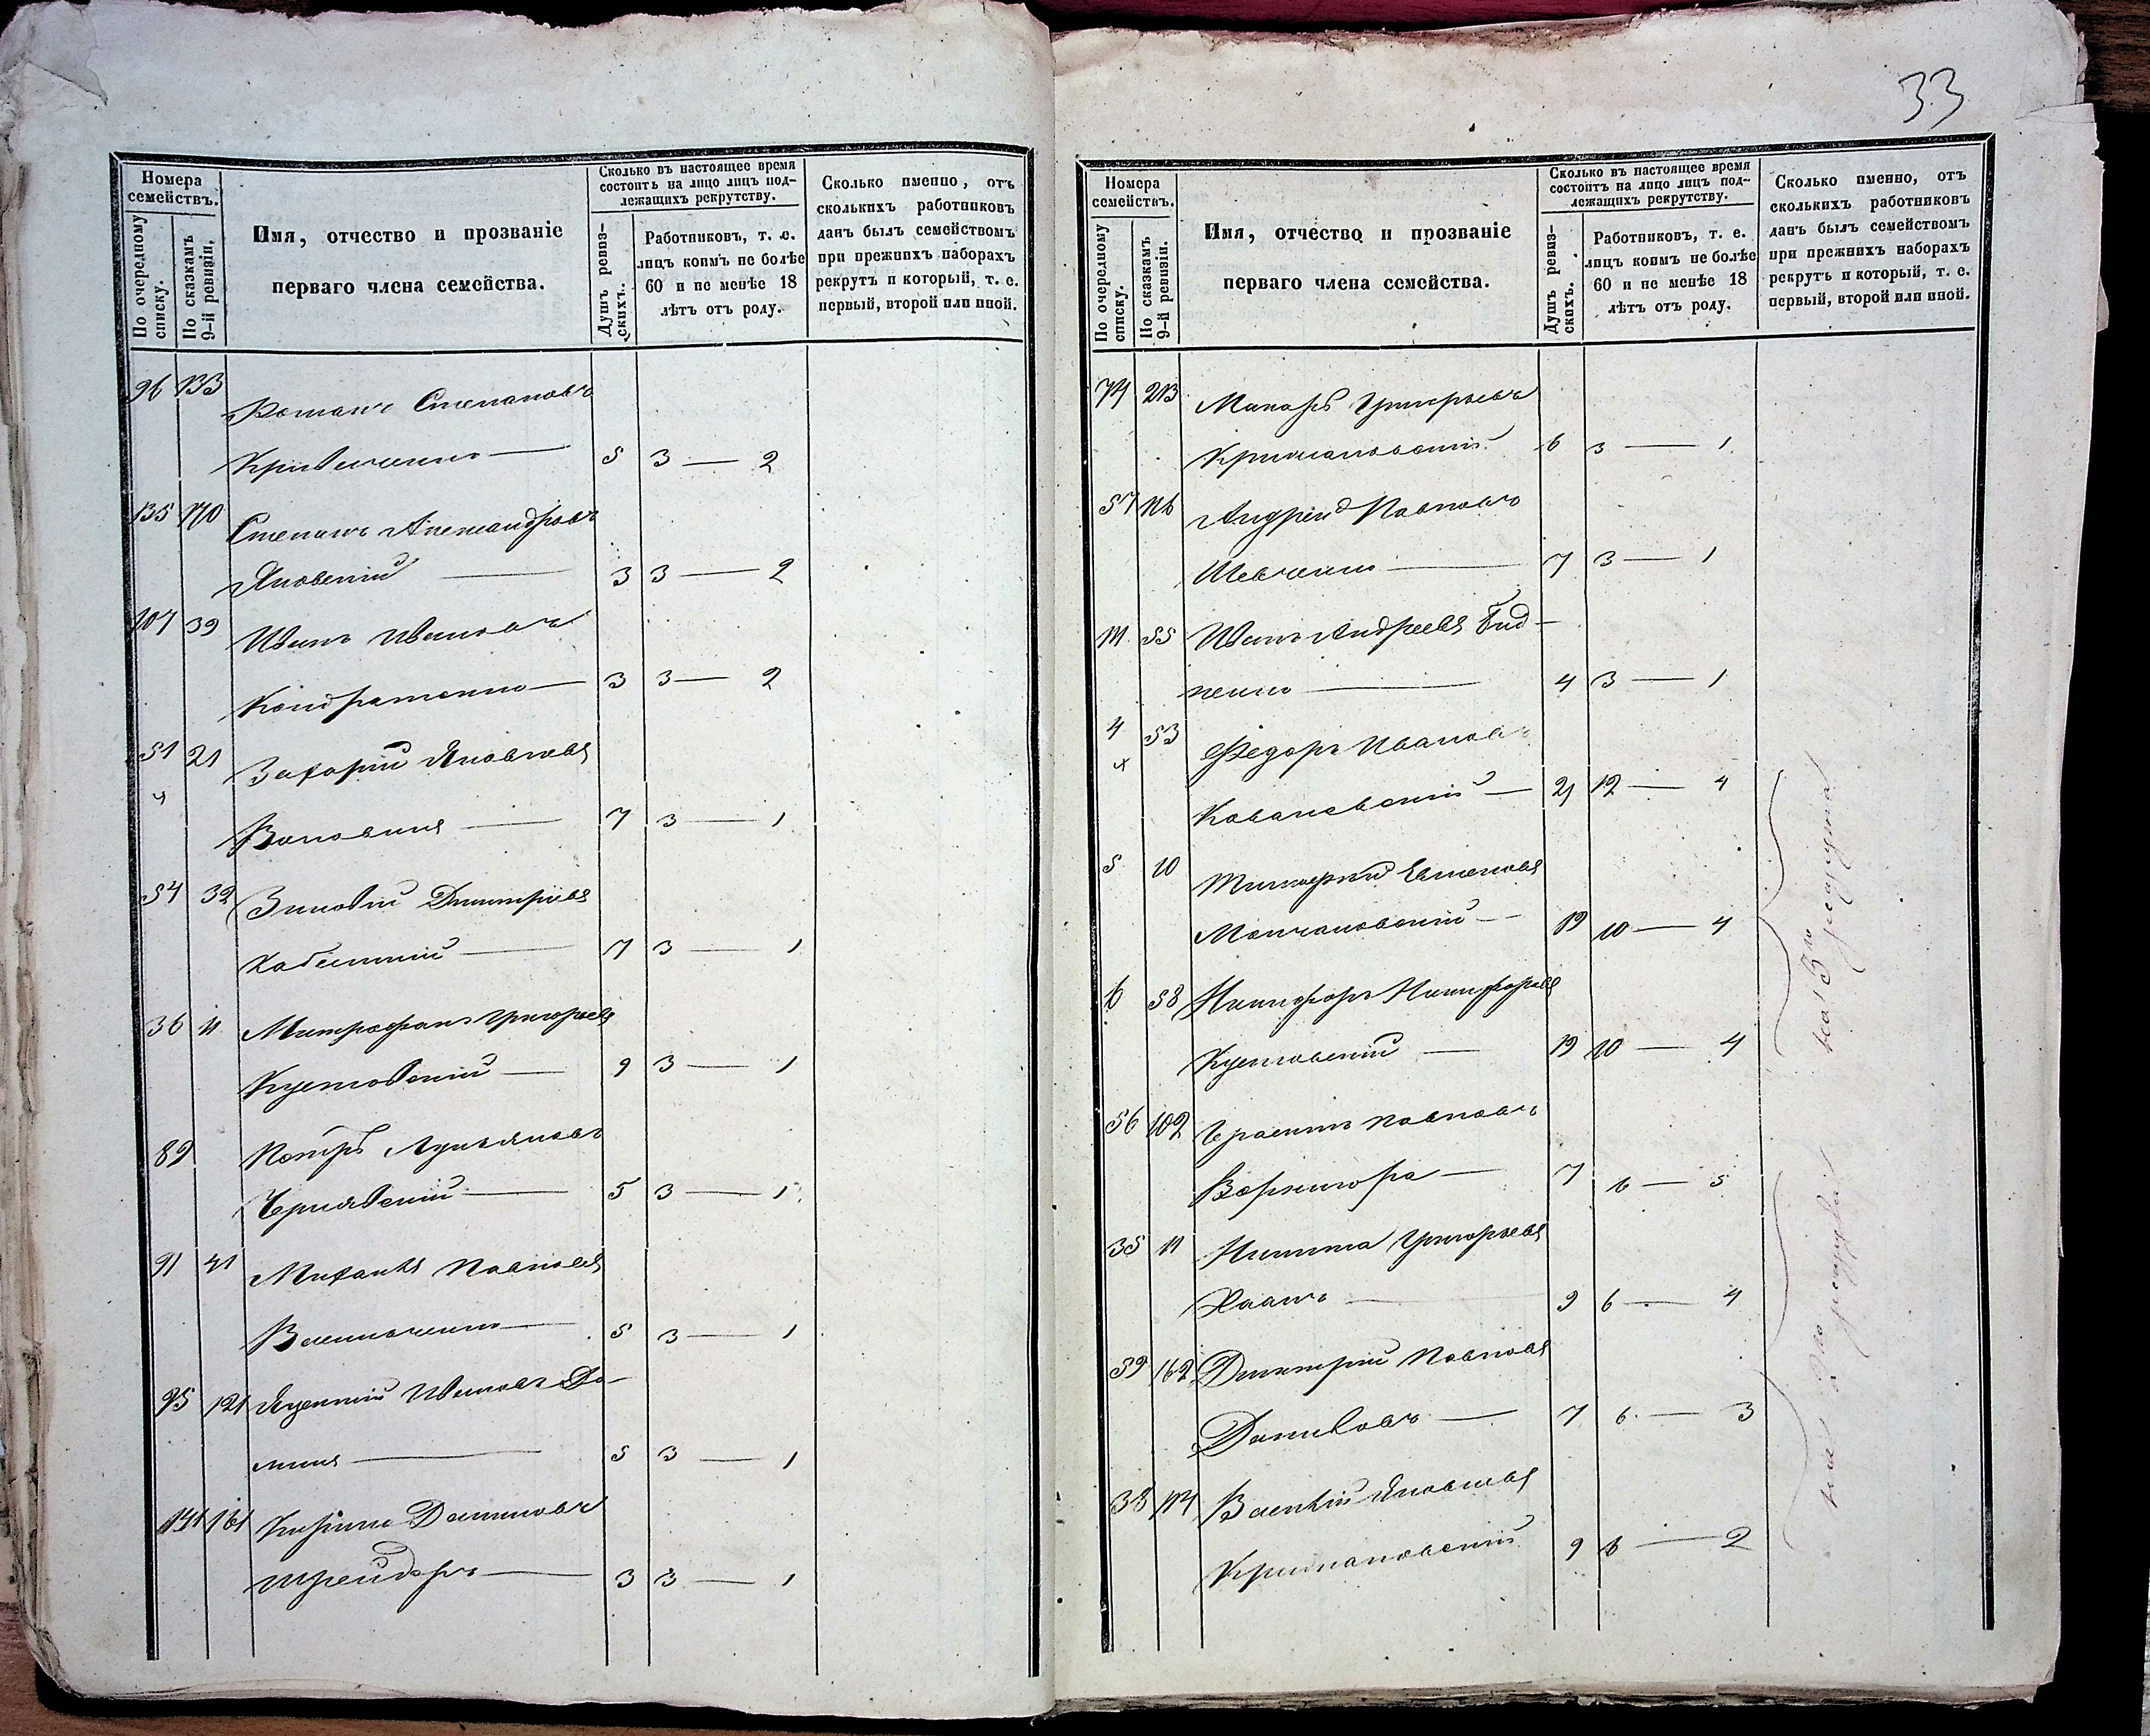 Номера
семействъ.
По очередному
списку.
По сказкамъ
9-й ревизіи.
Имя, отчество и прозваніе
перваго члена семейства.
Сколько въ настоящее время
состоитъ на лицо лицъ под-
лежащихъ рекрутству.
Душъ ревиз-
скихъ.
Работниковъ, т. е.
лицъ коимъ не болѣе
60 и не менѣе 18
лѣтъ отъ роду.
Сколько именно, отъ
сколькихъ работниковъ
данъ былъ семействомъ
при прежнихъ наборахъ
рекрутъ и который, т. е.
первый, второй или иной.
96 133 Романъ Степановъ
5 3 — 2
135 170 Степанъ Александровъ
Яновскій — 3 3 — 2
107 39 Иванъ Ивановъ
Кондратенко — 3 3 — 2
51 21 Захарій Яковлевъ
Воловикъ — 7 3 — 1
54 32 Зиновій Димитріевъ
7 3 — 1
36 11 Митрофанъ Григорьевъ
Кустовскій — 9 3 — 1
89 Петръ Лукьяновъ
Чернявскій — 5 3 — 1
91 41 Михаилъ Павловъ
Василенко — 5 3 — 1
95 121 Ивановъ До-
5 3 — 1
141 161 Кирило Даниловъ
Шрейдеръ — 3 3 — 1
33
Номера
семействъ.
По очередному
списку.
По сказкамъ
9-й ревизіи.
Имя, отчество и прозваніе
перваго члена семейства.
Сколько въ настоящее время
состоитъ на лицо лицъ под-
лежащихъ рекрутству.
Душъ ревиз-
скихъ.
Работниковъ, т. е.
лицъ коимъ не болѣе
60 и не менѣе 18
лѣтъ отъ роду.
Сколько именно, отъ
сколькихъ работниковъ
данъ былъ семействомъ
при прежнихъ наборахъ
рекрутъ и который, т. е.
первый, второй или иной.
74 213 Макаръ Григорьевъ
Крижановскій 6 3 — 1
57 116 Андрей Павловъ
Шевченко — 7 3 — 1
111 55 Иванъ Андреевъ Бид-
ненко — 4 3 — 1
4 53 Федоръ Ивановъ
Ковалевскій — 21 12 — 4
5 10 Тимофей Евменовъ
Молчановскій — 19 10 — 4
6 58 Никифоръ Никифоровъ
Кустовскій — 19 10 — 4
56 102 Герасимъ Павловъ
Вернигора — 7 6 — 5
35 11 Никита Григорьевъ
9 6 — 4
59 162 Дмитрій Павловъ
Даниловъ — 7 6 — 3
38 114 Василій Яковлевъ
Крижановскій 9 6 — 2
на 3го рекрута
на 2го рекрута